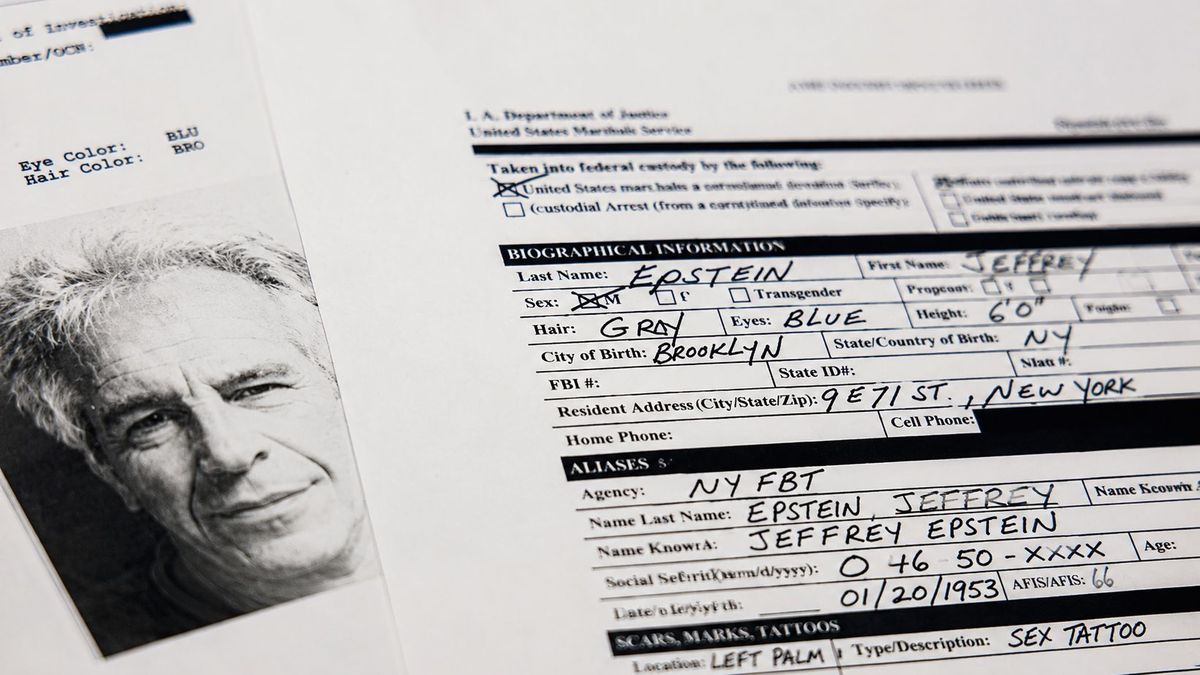 of Investigation
mber/OCN:
Eye Color: BLU
Hair Color: BRO
I. A. Department of Justice
United States Marshals Service
Taken into federal custody by the following:
United States
(custodial Arrest (from a
BIOGRAPHICAL INFORMATION
Last Name: EPSTEIN First Name: JEFFREY
Sex: M f Transgender
Hair: GRAY Eyes: BLUE Height: 6'0"
City of Birth: BROOKLYN State/Country of Birth: NY
FBI #: State ID#:
Resident Address (City/State/Zip): 9 E 71 ST., NEW YORK
Home Phone: Cell Phone:
ALIASES
Agency: NY FBT
Name Last Name: EPSTEIN, JEFFREY
JEFFREY EPSTEIN
Social 0 46 50 - XXXX Age:
01/20/1953 AFIS/AFIS: 66
SCARS, MARKS, TATTOOS
Location: LEFT PALM Type/Description: SEX TATTOO